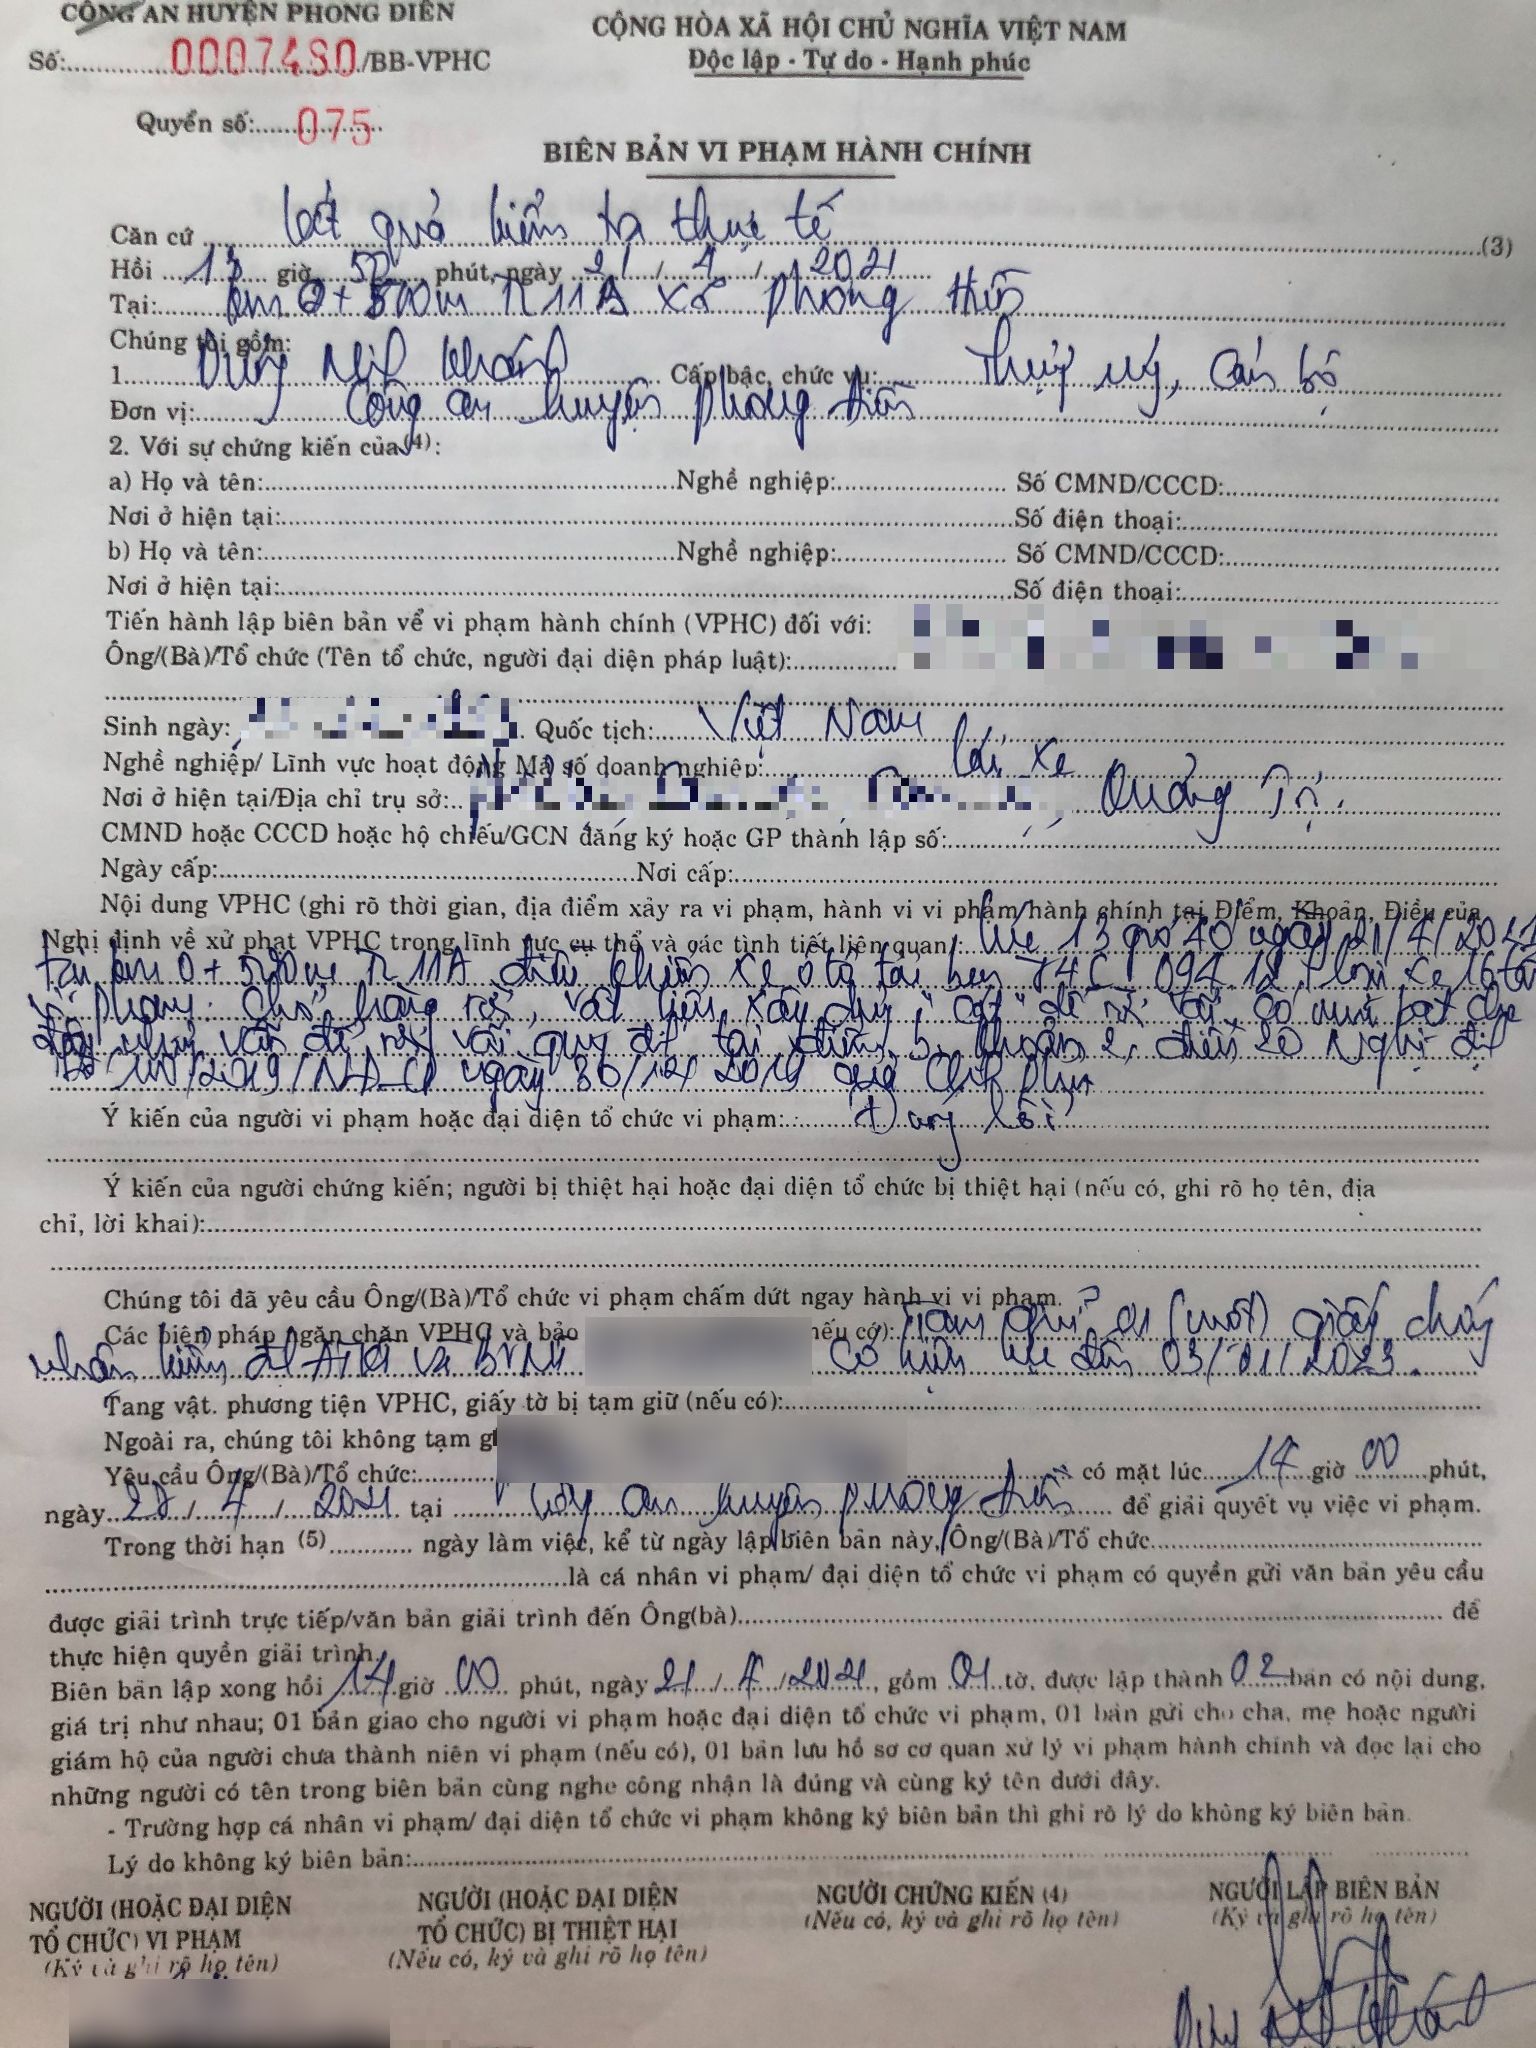 CÔNG AN HUYỆN PHONG ĐIỀN
CỘNG HÒA XÃ HỘI CHỦ NGHĨA VIỆT NAM
Số: 0007480/BB-VPHC
Độc lập - Tự do - Hạnh phúc
Quyển số: 075
BIÊN BẢN VI PHẠM HÀNH CHÍNH
Căn cứ kết quả kiểm tra thực tế (3)
Hồi 13 giờ 50 phút, ngày 21/4/2021
Tại: km 0+500m TL 11A xã Phong Hiền
Chúng tôi gồm:
1. Cấp bậc, chức vụ: Thượng úy, Cán bộ
Đơn vị: Công an huyện Phong Điền
2. Với sự chứng kiến của (4):
a) Họ và tên: Nghề nghiệp: Số CMND/CCCD:
Nơi ở hiện tại: Số điện thoại:
b) Họ và tên: Nghề nghiệp: Số CMND/CCCD:
Nơi ở hiện tại: Số điện thoại:
Tiến hành lập biên bản về vi phạm hành chính (VPHC) đối với:
Ông/(Bà)/Tổ chức (Tên tổ chức, người đại diện pháp luật):
Sinh ngày: Quốc tịch: Việt Nam
Nghề nghiệp/ Lĩnh vực hoạt động Mã số doanh nghiệp: lái xe
Nơi ở hiện tại/Địa chỉ trụ sở: Quảng Trị.
CMND hoặc CCCD hoặc hộ chiếu/GCN đăng ký hoặc GP thành lập số:
Ngày cấp: Nơi cấp:
Nội dung VPHC (ghi rõ thời gian, địa điểm xảy ra vi phạm, hành vi vi phạm hành chính tại Điểm, Khoản, Điều của
Nghị định về xử phạt VPHC trong lĩnh vực cụ thể và các tình tiết liên quan): Lúc 13 giờ 40 ngày 21/4/2021
tại km 0+500m TL 11A điều khiển xe ô tô tải ben 74C 094.12, loại xe 16 tấn
vi phạm: Chở hàng rời, vật liệu xây dựng "cát" để rơi vãi, có mui bạt che
đậy nhưng vẫn để rơi vãi quy định tại điểm b khoản 2, điều 20 Nghị định
số 100/2019/NĐ-CP ngày 30/12/2019 của Chính phủ
Ý kiến của người vi phạm hoặc đại diện tổ chức vi phạm: Đúng lỗi
Ý kiến của người chứng kiến; người bị thiệt hại hoặc đại diện tổ chức bị thiệt hại (nếu có, ghi rõ họ tên, địa
chỉ, lời khai):
Chúng tôi đã yêu cầu Ông/(Bà)/Tổ chức vi phạm chấm dứt ngay hành vi vi phạm.
Các biện pháp ngăn chặn VPHC và bảo nếu có): Tạm giữ 01 (một) giấy chứng
nhận kiểm định ATKT và BVMT có hiệu lực đến 03/01/2023.
Tang vật. phương tiện VPHC, giấy tờ bị tạm giữ (nếu có):
Ngoài ra, chúng tôi không tạm
Yêu cầu Ông/(Bà)/Tổ chức: có mặt lúc 14 giờ 00 phút,
ngày 28/4/2021 tại Công an huyện Phong Điền để giải quyết vụ việc vi phạm.
Trong thời hạn (5) ngày làm việc, kể từ ngày lập biên bản này, Ông/(Bà)/Tổ chức
là cá nhân vi phạm/ đại diện tổ chức vi phạm có quyền gửi văn bản yêu cầu
được giải trình trực tiếp/văn bản giải trình đến Ông(bà) để
thực hiện quyền giải trình.
Biên bản lập xong hồi 14 giờ 00 phút, ngày 21/4/2021, gồm 01 tờ, được lập thành 02 bản có nội dung,
giá trị như nhau; 01 bản giao cho người vi phạm hoặc đại diện tổ chức vi phạm, 01 bản gửi cho cha, mẹ hoặc người
giám hộ của người chưa thành niên vi phạm (nếu có), 01 bản lưu hồ sơ cơ quan xử lý vi phạm hành chính và đọc lại cho
những người có tên trong biên bản cùng nghe công nhận là đúng và cùng ký tên dưới đây.
- Trường hợp cá nhân vi phạm/ đại diện tổ chức vi phạm không ký biên bản thì ghi rõ lý do không ký biên bản.
Lý do không ký biên bản:
NGƯỜI (HOẶC ĐẠI DIỆN
TỔ CHỨC) VI PHẠM
(Ký và ghi rõ họ tên)
NGƯỜI (HOẶC ĐẠI DIỆN
TỔ CHỨC) BỊ THIỆT HẠI
(Nếu có, ký và ghi rõ họ tên)
NGƯỜI CHỨNG KIẾN (4)
(Nếu có, ký và ghi rõ họ tên)
NGƯỜI LẬP BIÊN BẢN
(Ký và ghi rõ họ tên)